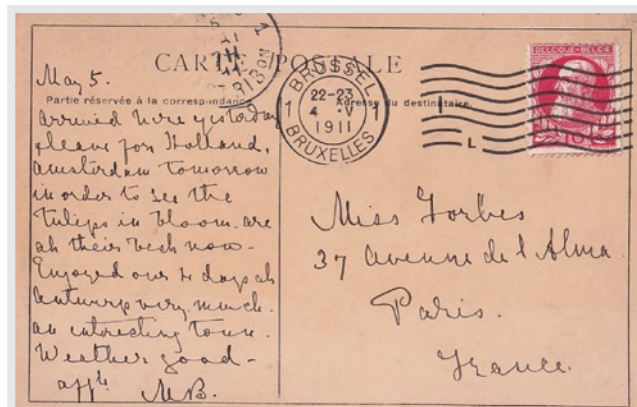 CARTE POSTALE
Partie réservée à la correspondance
Adresse du destinataire
BRUSSEL
1 22-23 1
4 V
1911
BRUXELLES
L
BELGIQUE-BELGIË
10
May 5.
arrived here yesterday
& leave for Holland,
Amsterdam tomorrow
in order to see the
tulips in bloom. are
at their best now -
Enjoyed our 4 days at
Antwerp very much.
an interesting town.
Weather good -
aff^ly MB.
Miss Forbes
37 avenue de l'Alma
Paris.
France.